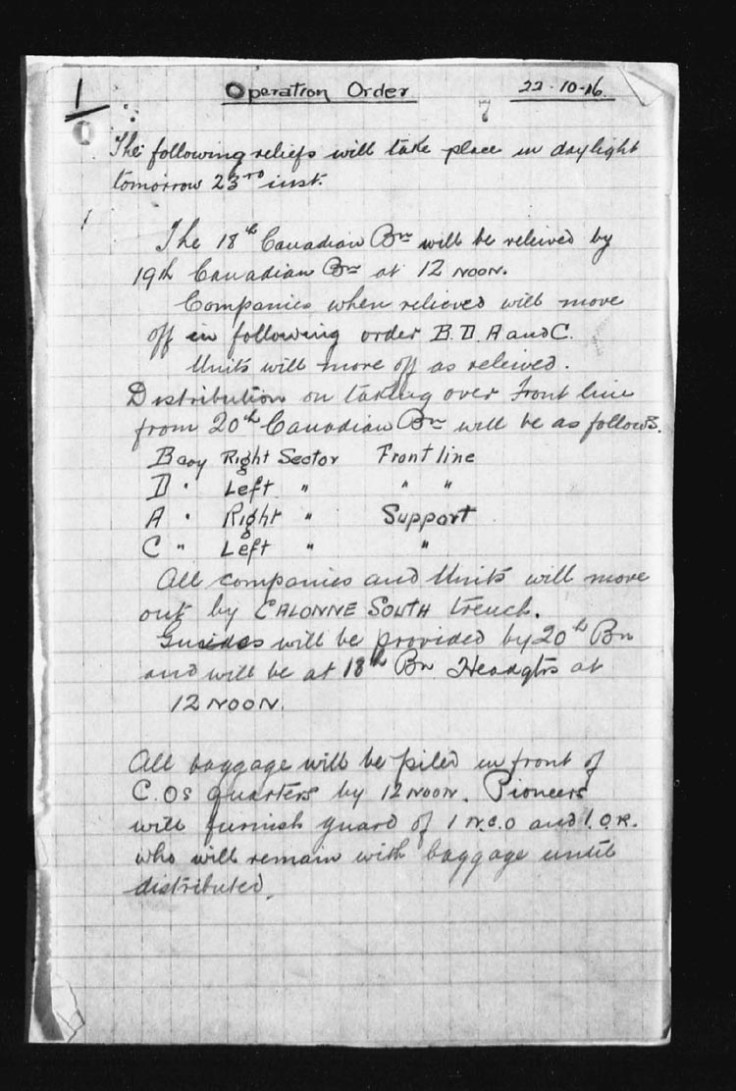 1
Operation Order 22-10-16.
7
The following reliefs will take place in daylight
tomorrow 23rd inst.
The 18th Canadian Bn will be releived by
19th Canadian Bn at 12 NOON.
Companies when relieved will move
off in following order B.D.A and C.
Units will move off as releived.
Distribution on taking over Front line
from 20th Canadian Bn will be as follows.
B Coy Right Sector Front line
D " Left " " "
A " Right " Support
C " Left " "
All companies and Units will move
out by CALONNE SOUTH trench.
Guides will be provided by 20th Bn
and will be at 18th Bn Headqtrs at
12 NOON.
All baggage will be piled in front of
C.Os quarters by 12 NOON. Pioneers
will furnish guard of 1 N.C.O and 1.O.R.
who will remain with baggage until
distributed.